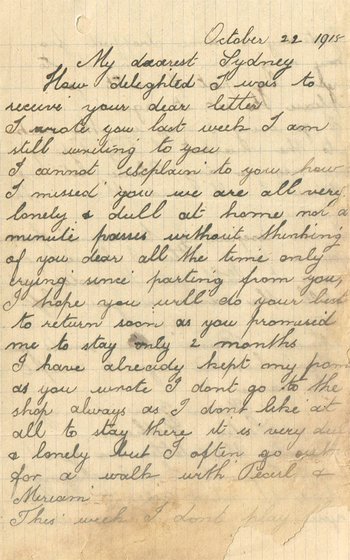 October 22 1915
My dearest Sydney
How delighted I was to
receive your dear letter
I wrote you last week I am
still writing to you
I cannot explain to you how
I missed you we are all very
lonely & dull at home not a
minute passes without thinking
of you dear all the time only
crying since parting from you,
I hope you will do your best
to return soon as you promised
me to stay only 2 months
I have already kept my prom
as you wrote I dont go to the
shop always as I dont like at
all to stay there it is very du
& lonely but I often go out
for a walk with Pearl &
Miriam
This week I dont